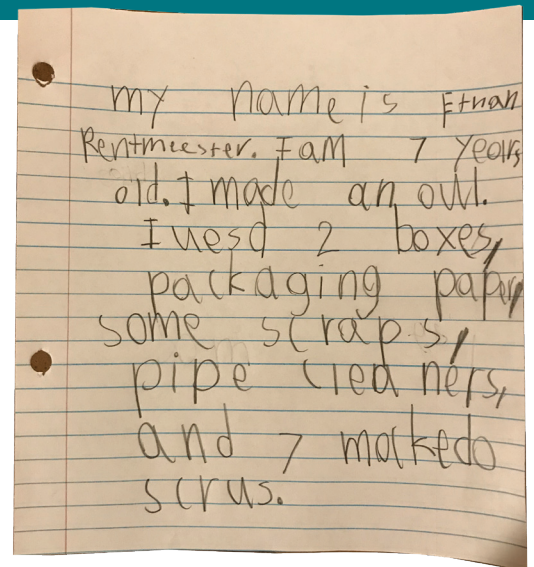 my name is Ethan
Rentmeester. I am 7 years
old. I made an owl.
I uesd 2 boxes,
packaging paper,
some scraps,
pipe cleaners,
and 7 makedo
scrus.